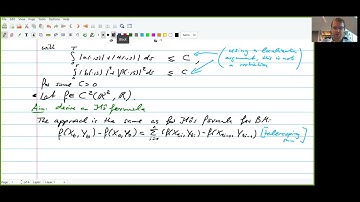 will
∫₀ᵀ |a(·,s)| + |α(·,s)| ds ≤ C,
∫₀ᵀ |b(·,s)|² + |β(·,s)|² ds ≤ C
(using a localization argument, this is not a restriction)
for some C > 0
• Let f ∈ C²(ℝ², ℝ).
Aim: derive an Itô formula
The approach is the same as for Itô's formula for BM:
f(X_t, Y_t) - f(X_0, Y_0) = Σ (f(X_{t_i}, Y_{t_i}) - f(X_{t_{i-1}}, Y_{t_{i-1}})) [telescoping sum]